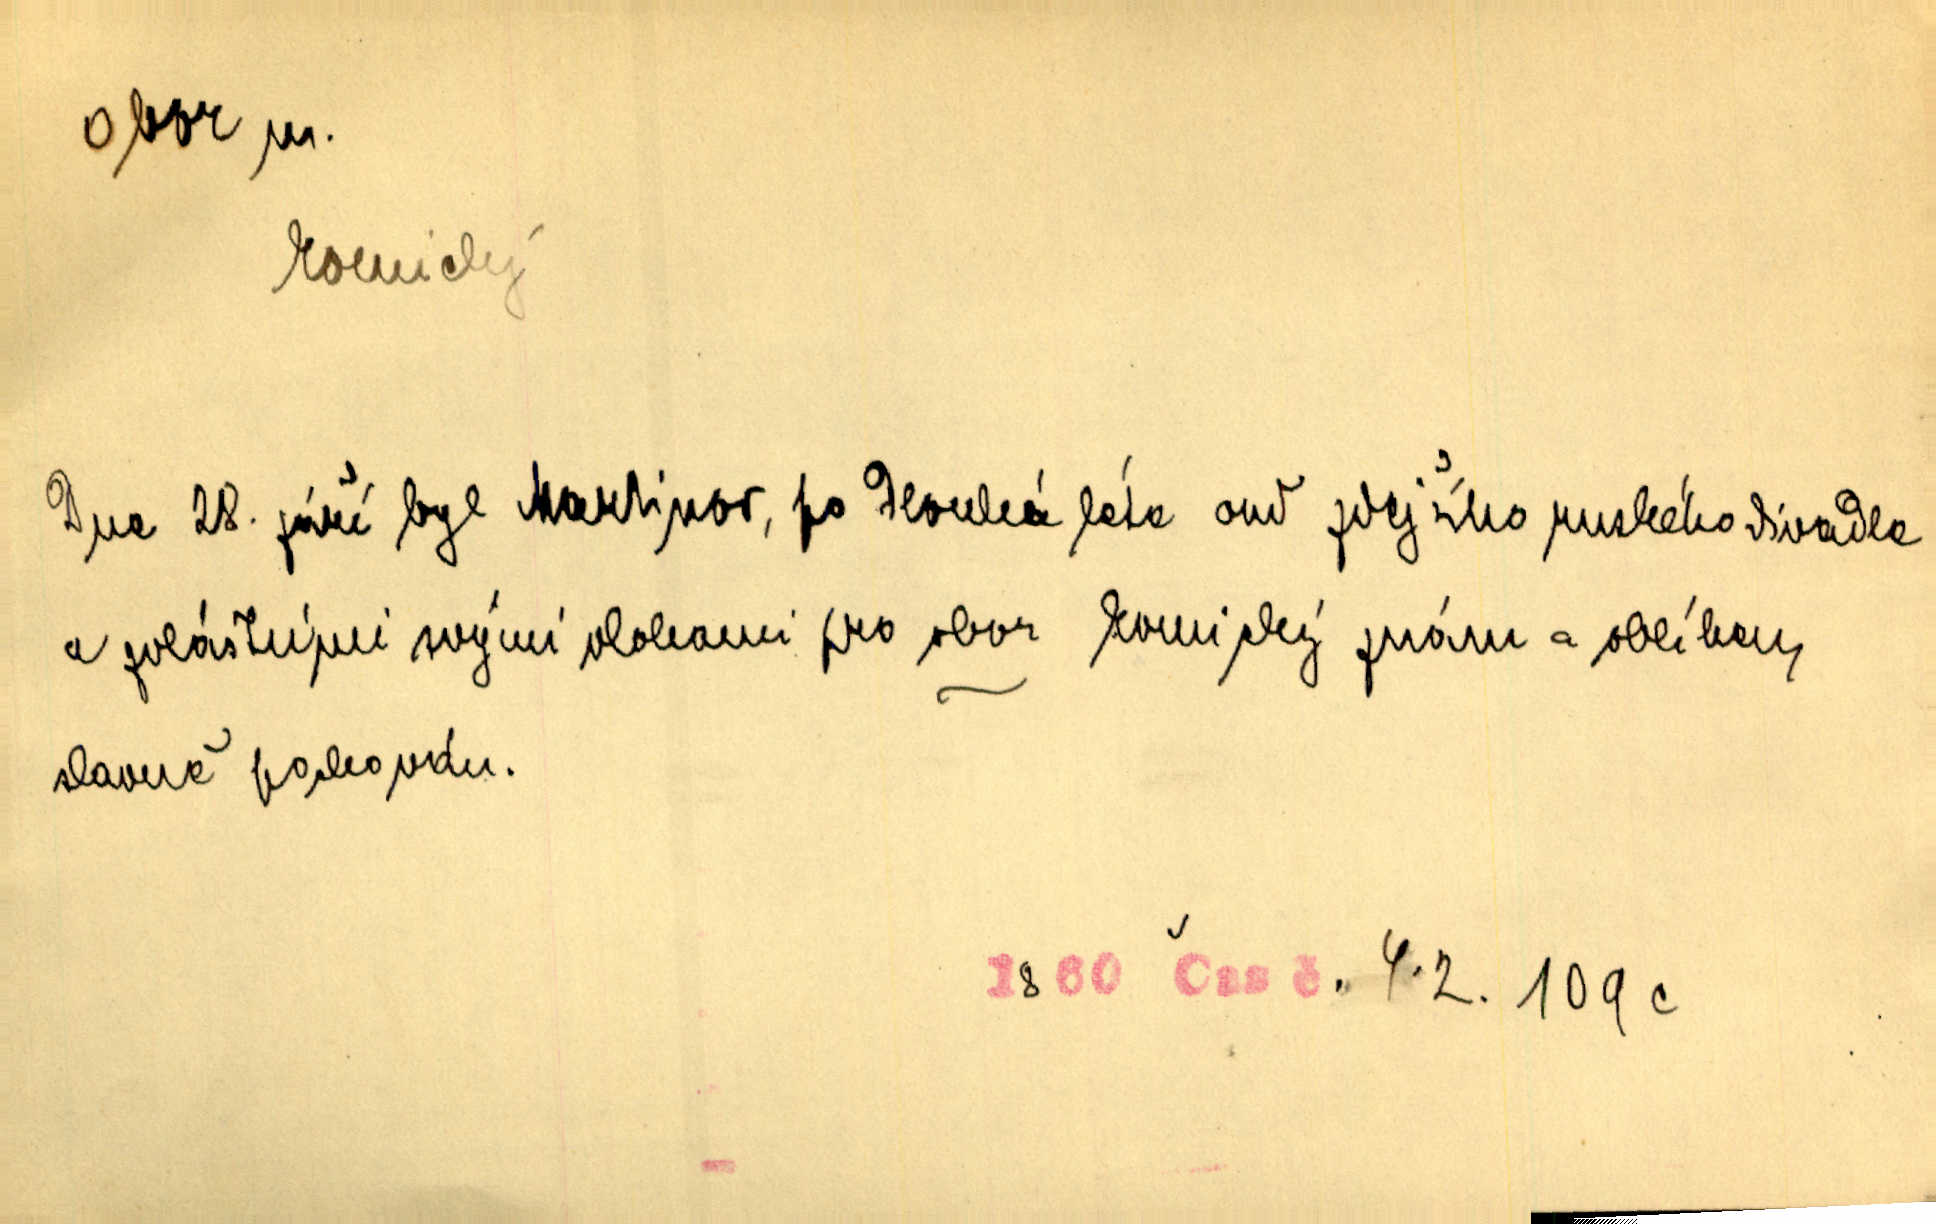 obor m.
komický
Dne 28. září byl Martinov, po dlouhá léta oud zdejšího ruského divadla
a zvláštními svými vlohami pro obor komický znám a oblíben,
slavně pochován.
1860 Čas č. 4.2. 109 c